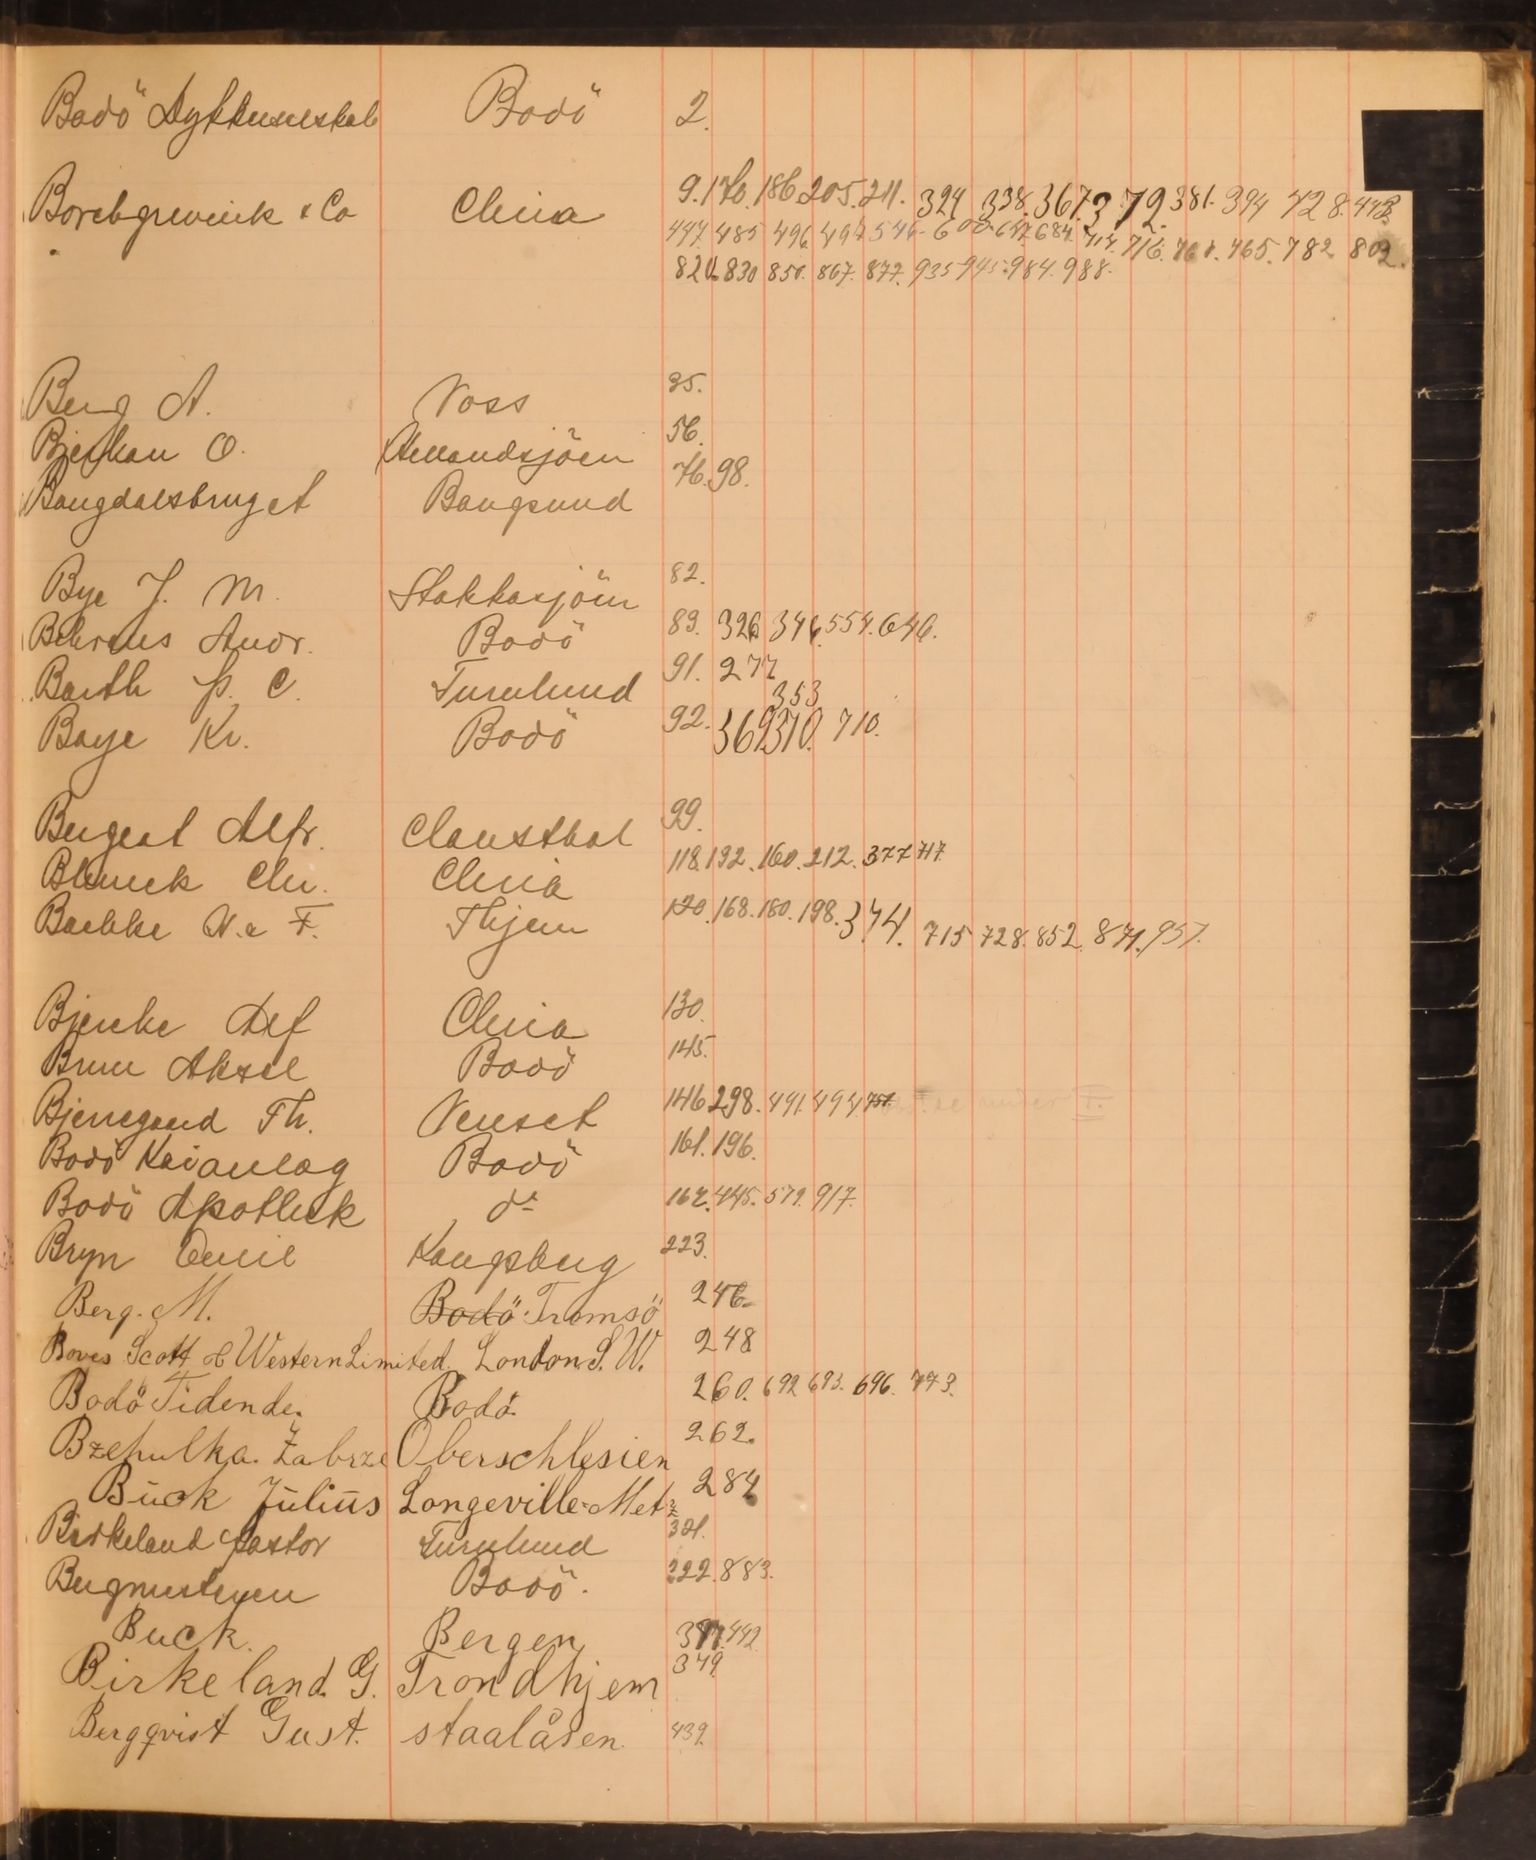 Bodö Dykkerselskab Bodö 2.
Borchgrevink & Co Chria 9. 176. 186. 205. 211. 324 338. 367. 372. 381. 394 428. 443.
447. 485 496. 497 546. 600. 647. 684. 714. 716. 761. 765. 782 802.
820. 830 850. 867. 877. 935 945. 984. 988.
Berg A. Voss 35.
Bjerkan O. Hellandsjöen 56.
Bangdalsbruget Bangsund 76. 98.
Bye J. M. Stokkasjöen 82.
Behrens Andr. Bodö 89. 326 346. 554. 646.
Barth P. C. Furulund 91. 277
353
Boye Kr. Bodö 92. 369 370. 710.
Bergeat Alfr. Clausthal 99.
Blunck Chr. Chria 118. 192. 160. 212. 377 717.
Bachke N. & F. Thjem 120. 168. 180. 198. 374. 715 728. 852. 871. 957.
Bjercke Alf Chria 130.
Brun Aksel Bodö 145.
Bjerregaard Th. Venset 146 298. 491. 494 751.
Bodö Kaianlæg Bodö 161. 196.
Bodö Apothek do 162. 445. 579. 917.
Bryn Emil Kongsberg 223.
Berg. M. Bodö Tromsö 246.
Boves Scott & Western Limited. London S. W. 248
Bodö Tidende. Bodö. 260. 692 693. 696. 773.
Bzehulka. Zabrze Oberschlesien 262.
Bück Jülius Longeville-Metz 284
Birkeland Pastor Furulund 321.
Bergmesteren Bodö. 322. 883.
Buck. Bergen 442.
Birkeland. G. Trondhjem 349.
Bergqvist Gust. staalåsen. 439